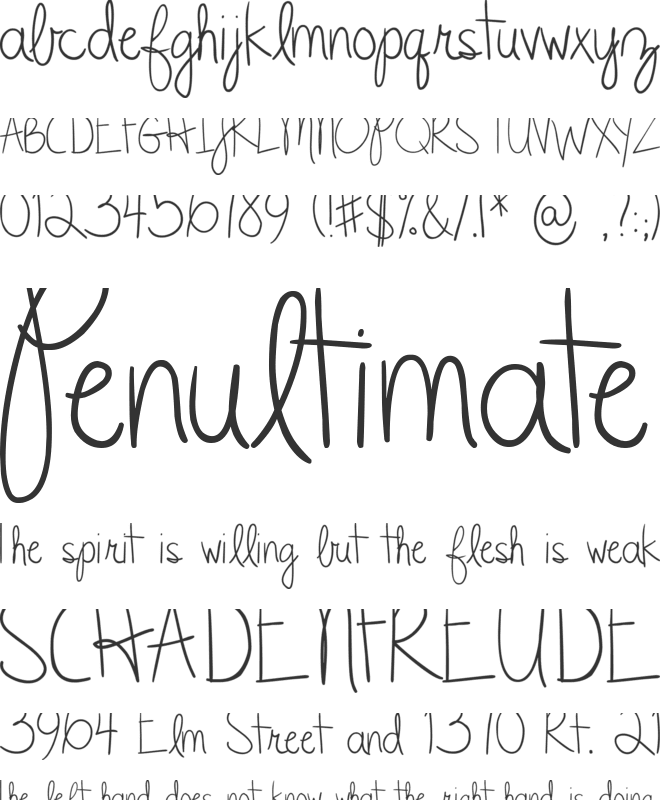 abcdefghijklmnopqrstuvwxyz
ABCDEFGHIJKLMNOPQRSTUVWXYZ
0123456789 (!#$%&/.|* @ ,?:;)
Penultimate
The spirit is willing but the flesh is weak
SCHADENFREUDE
3964 Elm Street and 1370 Rt. 21
The left hand does not know what the right hand is doing.